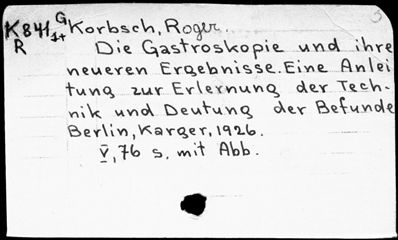 K841 G Korbsch, Roger.
R 1+ Die Gastroskopie und ihre
neueren Ergebnisse. Eine Anlei
tung zur Erlernung der Tech-
nik und Deutung der Befunde
Berlin, Karger, 1926.
V, 76 s. mit Abb.